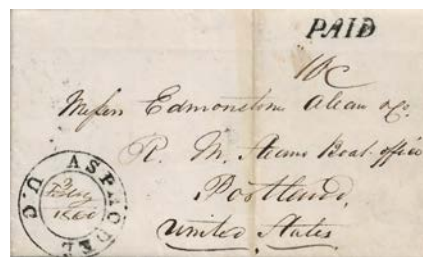 PAID
10c
Messrs Edmonstone Allan & Co.
R. M. Steam Boat office
Portland,
United States
ASPHODEL U.C
1860